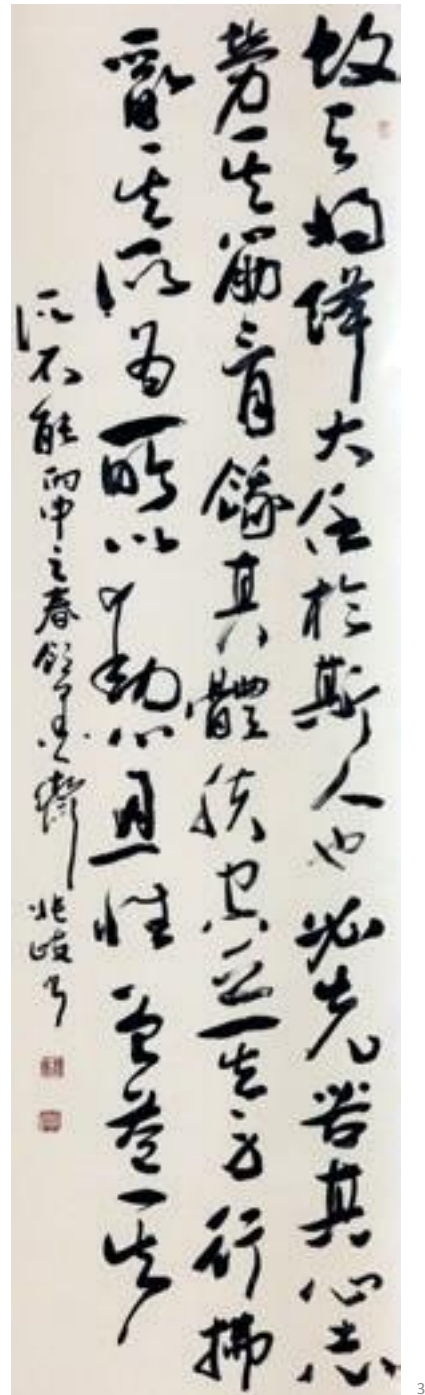 故天将降大任於斯人也必先苦其心志
勞其筋骨餓其體膚空乏其身行拂
亂其所為所以動心忍性曾益其
所不能丙申之春
3